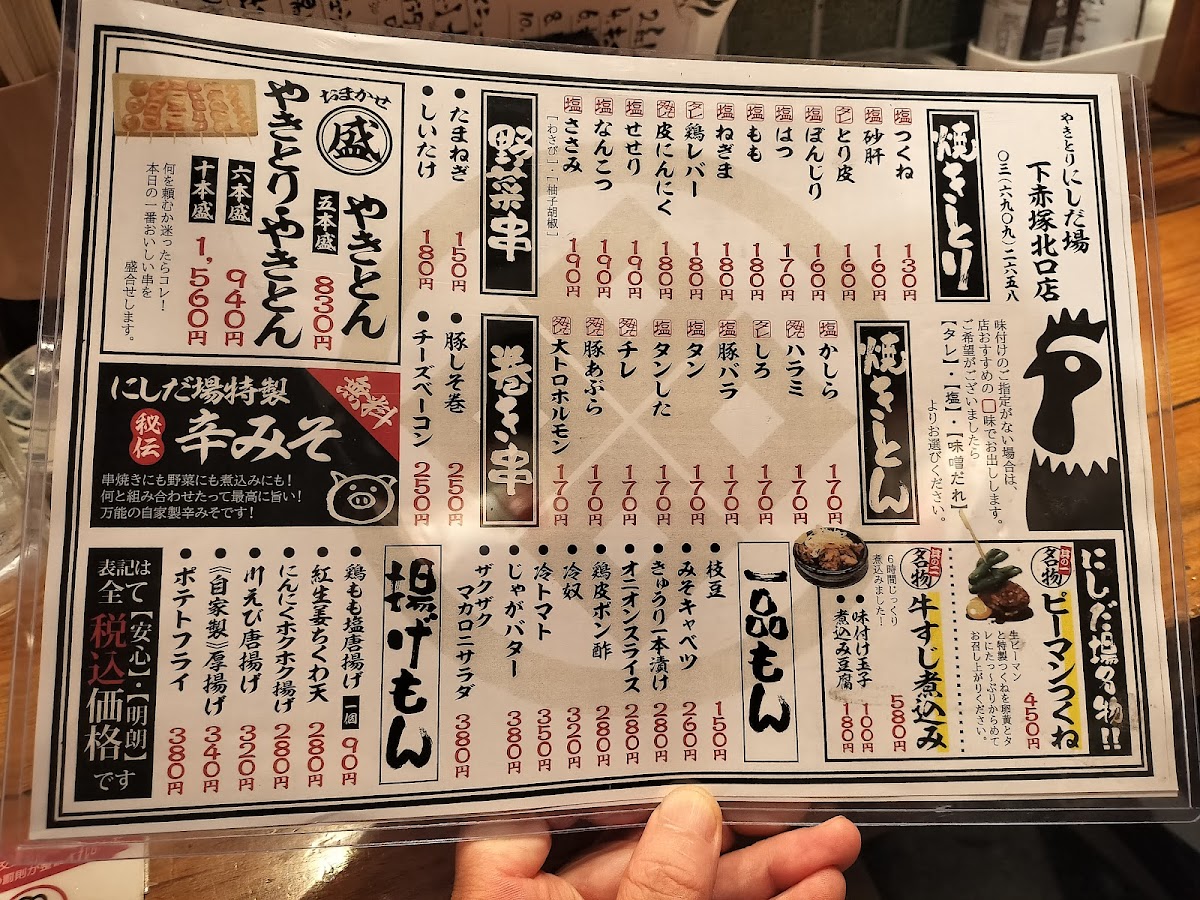 やきとりにしだ場
下赤塚北口店
〇三(六九〇九)二六五八
味付けのご指定がない場合は、
店おすすめの□味でお出しします。
ご希望がございましたら
【タレ】・【塩】・【味噌だれ】
よりお選びください。
焼きとり
塩 つくね 130円
塩 砂肝 160円
タレ とり皮 160円
塩 ぼんじり 160円
塩 はつ 170円
塩 もも 180円
塩 ねぎま 180円
タレ 鶏レバー 180円
皮にんにく 180円
塩 せせり 190円
塩 なんこつ 190円
塩 ささみ 190円
[わさび]・[柚子胡椒]
野菜串
●たまねぎ 150円
●しいたけ 180円
おまかせ
盛
やきとん
五本盛 830円
やきとり・やきとん
六本盛 940円
十本盛 1,560円
何を頼むか迷ったらコレ!
本日の一番おいしい串を
盛合せします。
焼きとん
塩 かしら 170円
ハラミ 170円
タレ しろ 170円
塩 豚バラ 170円
塩 タン 170円
塩 タンした 170円
チレ 170円
豚あぶら 170円
大トロホルモン 170円
巻き串
●豚しそ巻 250円
●チーズベーコン 250円
無料
にしだ場特製
秘伝 辛みそ
串焼きにも野菜にも煮込みにも!
何と組み合わせたって最高に旨い!
万能の自家製辛みそです!
にしだ場名物!!
其の一 名物 ピーマンつくね 450円
生ピーマン
と特製つくねを卵黄とタ
レにたっ〜ぷりからめて
お召し上がりください。
名物 牛すじ煮込み 580円
6時間じっくり
煮込みました!
●味付け玉子 100円
●煮込み豆腐 180円
一品もん
●枝豆 150円
●みそキャベツ 260円
●きゅうり一本漬け 280円
●オニオンスライス 280円
●鶏皮ポン酢 280円
●冷奴 320円
●冷トマト 350円
●じゃがバター 380円
●ザクザク
マカロニサラダ 380円
揚げもん
●鶏もも塩唐揚げ 一個 90円
●紅生姜ちくわ天 280円
●にんにくホクホク揚げ 280円
●川えび唐揚げ 320円
●《自家製》厚揚げ 340円
●ポテトフライ 380円
表記は全て【安心】・【明朗】税込価格です